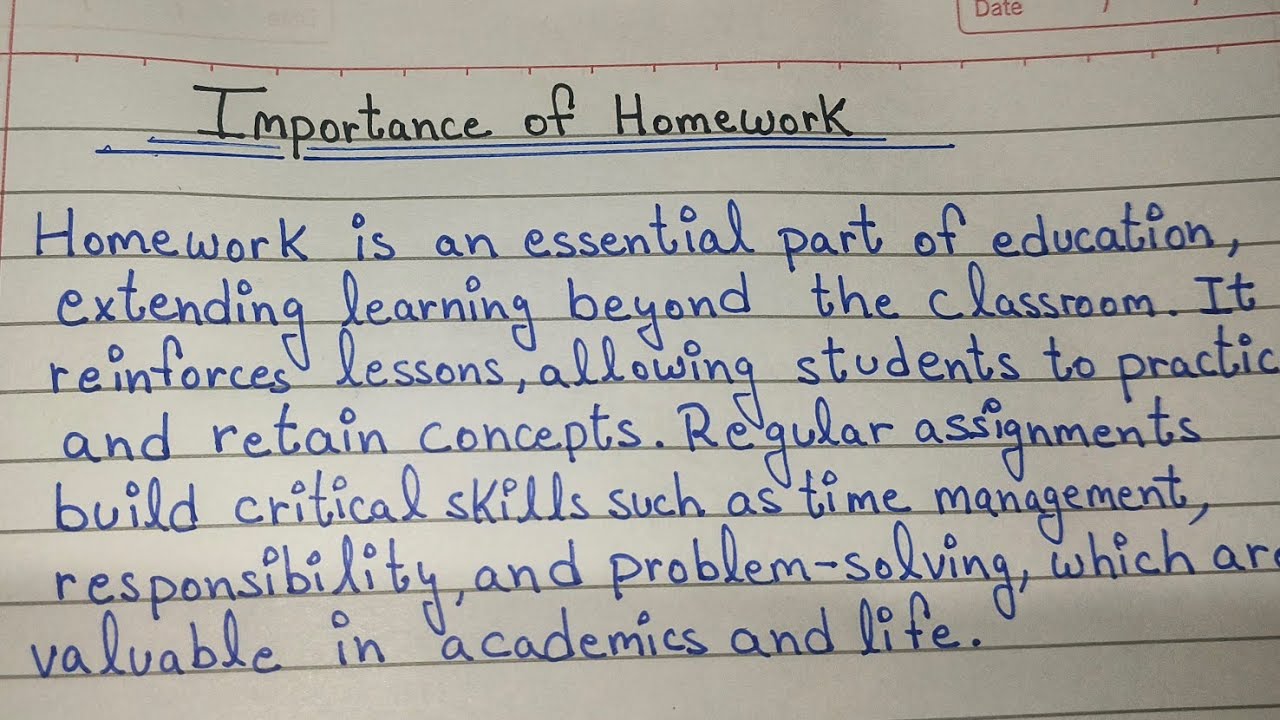 Date / /
Importance of Homework
Homework is an essential part of education,
extending learning beyond the classroom. It
reinforces lessons, allowing students to practic
and retain concepts. Regular assignments
build critical skills such as time management,
responsibility, and problem-solving, which are
valuable in academics and life.